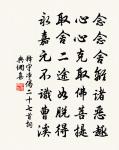 念念舍離諸惡趣
心心克取佛菩提
取舍二途如脫得
永嘉元不識曹溪
釋守淨偈二十七首詞
典網